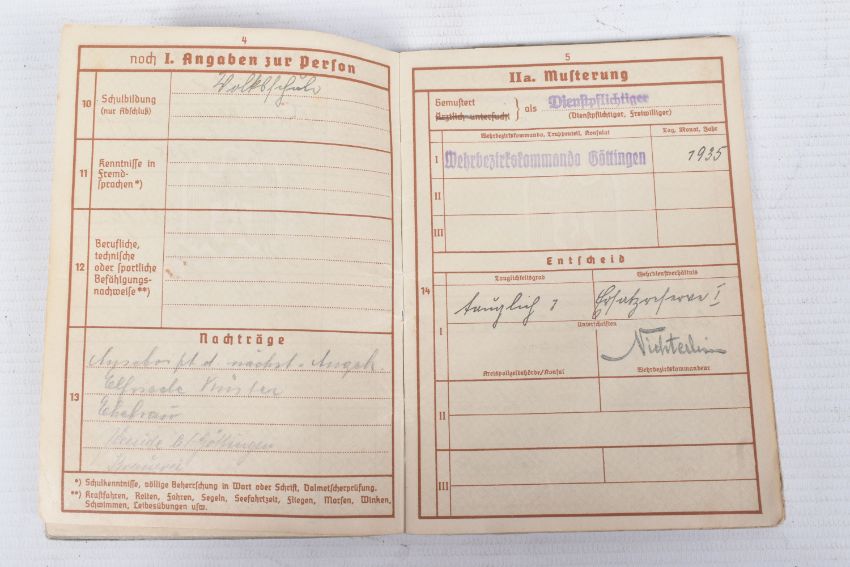 4
noch I. Angaben zur Person
10
Schulbildung
(nur Abschluß)
Volksschule
11
Kenntnisse in
Fremd-
sprachen*)
12
Berufliche,
technische
oder sportliche
Befähigungs-
nachweise**)
Nachträge
13
nächst. Angeh
Ehefrau
b/Göttingen
*) Schulkenntnisse, völlige Beherrschung in Wort oder Schrift, Dolmetscherprüfung.
**) Kraftfahren, Reiten, Fahren, Segeln, Seefahrtzeit, Fliegen, Morsen, Winken,
Schwimmen, Leibesübungen usw.
5
IIa. Musterung
Gemustert
Ärztlich untersucht
als
Dienstpflichtiger
(Dienstpflichtiger, Freiwilliger)
Wehrbezirkskommando, Truppenteil, Konsulat
Tag, Monat, Jahr
I
Wehrbezirkskommando Göttingen
1935
II
III
Entscheid
14
Tauglichkeitsgrad
Wehrdienstverhältnis
I
tauglich 1
Ersatzreserve I
Unterschriften
Kreispolizeibehörde/Konsul
Wehrbezirkskommandeur
II
III